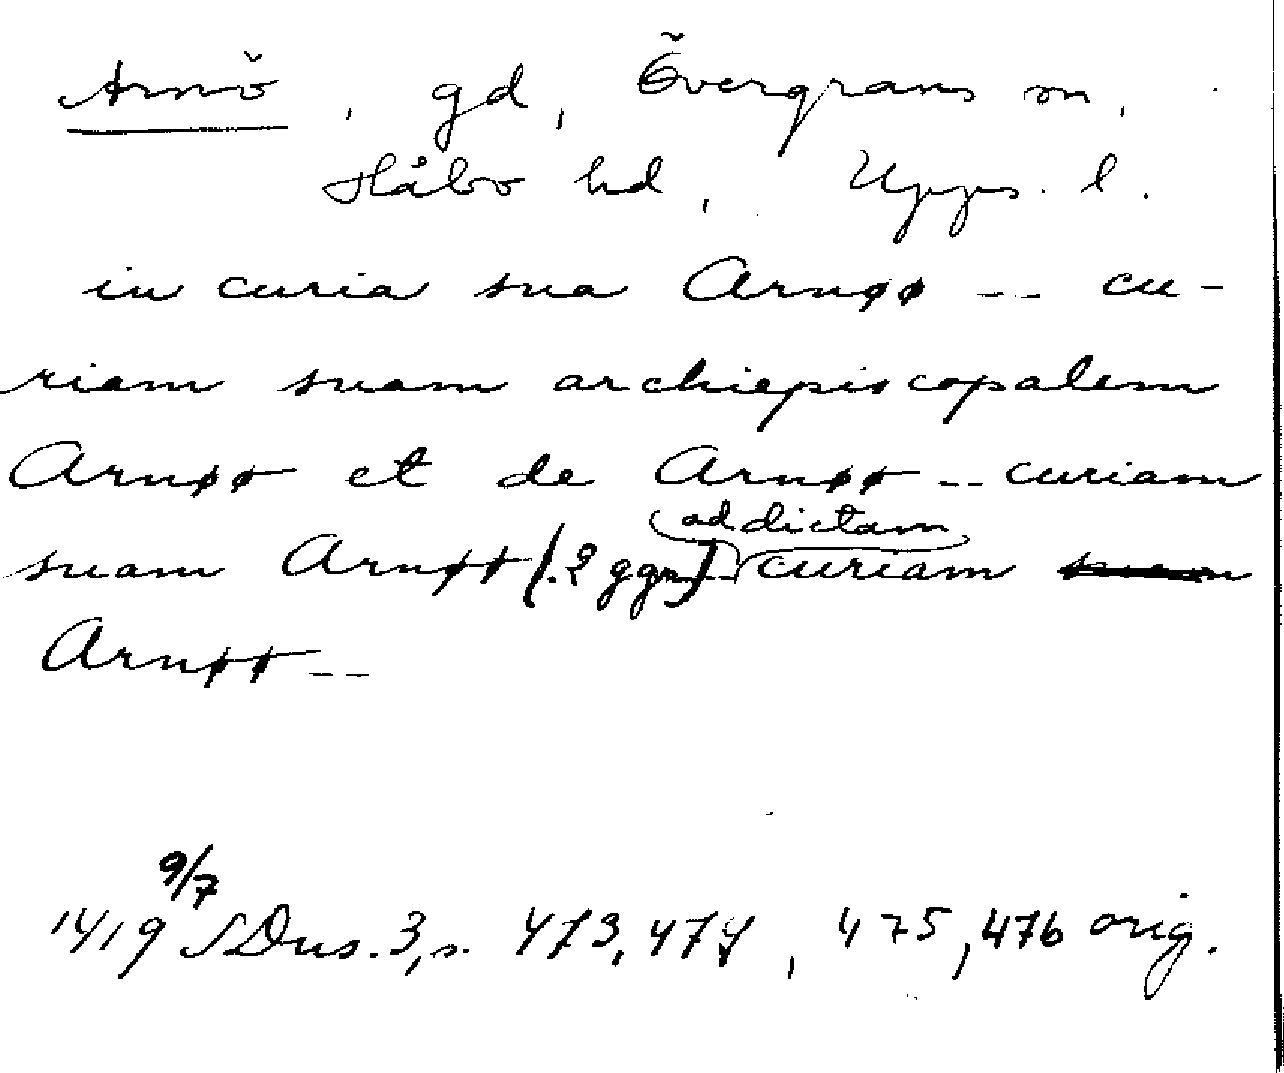 Arnö, gd, Övergrans sn,
Håbo hd, Upps. l.
in curia sua Arnøø -- cu-
riam suam archiepiscopalem
Arnøø et de Arnøø -- curiam
ad dictam
suam Arnøø (.2 ggr) -- curiam
Arnøø --
9/7
1419 SDns. 3, s. 473, 474, 475, 476 orig.